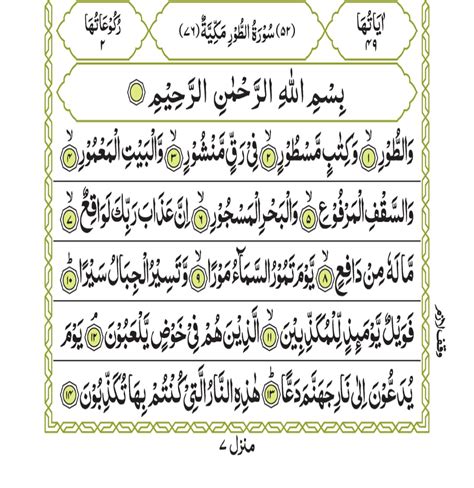 اٰيَاتُهَا ٤٩ (٥٢) سُوْرَةُ الطُّوْرِ مَكِّيَّةٌ (٧٦) رُكُوْعَاتُهَا ٢
بِسْمِ اللّٰهِ الرَّحْمٰنِ الرَّحِيْمِ
وَالطُّوْرِ ۙ‏﴿۱﴾ وَكِتٰبٍ مَّسْطُوْرٍ ۙ‏﴿۲﴾ فِىْ رَقٍّ مَّنْشُوْرٍ ۙ‏﴿۳﴾ وَّالْبَيْتِ الْمَعْمُوْرِ ۙ‏﴿۴﴾
وَالسَّقْفِ الْمَرْفُوْعِ ۙ‏﴿۵﴾ وَالْبَحْرِ الْمَسْجُوْرِ ۙ‏﴿۶﴾ اِنَّ عَذَابَ رَبِّكَ لَوَاقِعٌ ۙ‏﴿۷﴾
مَّا لَهٗ مِنْ دَافِعٍ ۙ‏﴿۸﴾ يَّوْمَ تَمُوْرُ السَّمَآءُ مَوْرًا ۙ‏﴿۹﴾ وَّتَسِيْرُ الْجِبَالُ سَيْرًا ؕ‏﴿۱۰﴾
فَوَيْلٌ يَّوْمَئِذٍ لِّلْمُكَذِّبِيْنَ ۙ‏﴿۱۱﴾ الَّذِيْنَ هُمْ فِىْ خَوْضٍ يَّلْعَبُوْنَ ۘ‏﴿۱۲﴾ يَوْمَ
يُدَعُّوْنَ اِلٰى نَارِ جَهَنَّمَ دَعًّا ؕ‏﴿۱۳﴾ هٰذِهِ النَّارُ الَّتِىْ كُنْتُمْ بِهَا تُكَذِّبُوْنَ ‏﴿۱۴﴾
وقف لازم
منزل ٧